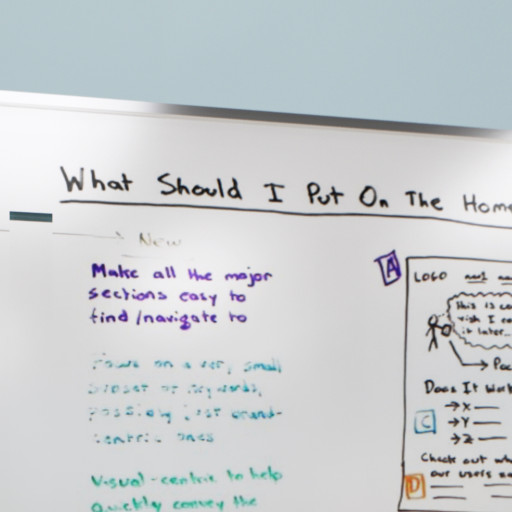 What Should I Put On The Home
New
Make all the major
sections easy to
find / navigate to
Focus on a very small
subset of keywords,
possibly just brand-
centric ones
Visual-centric to help
quickly convey the
A
LOGO
this is co
wish I co
it later...
Does It Work
→X
C →Y
→Z
Check out wh
our users
D